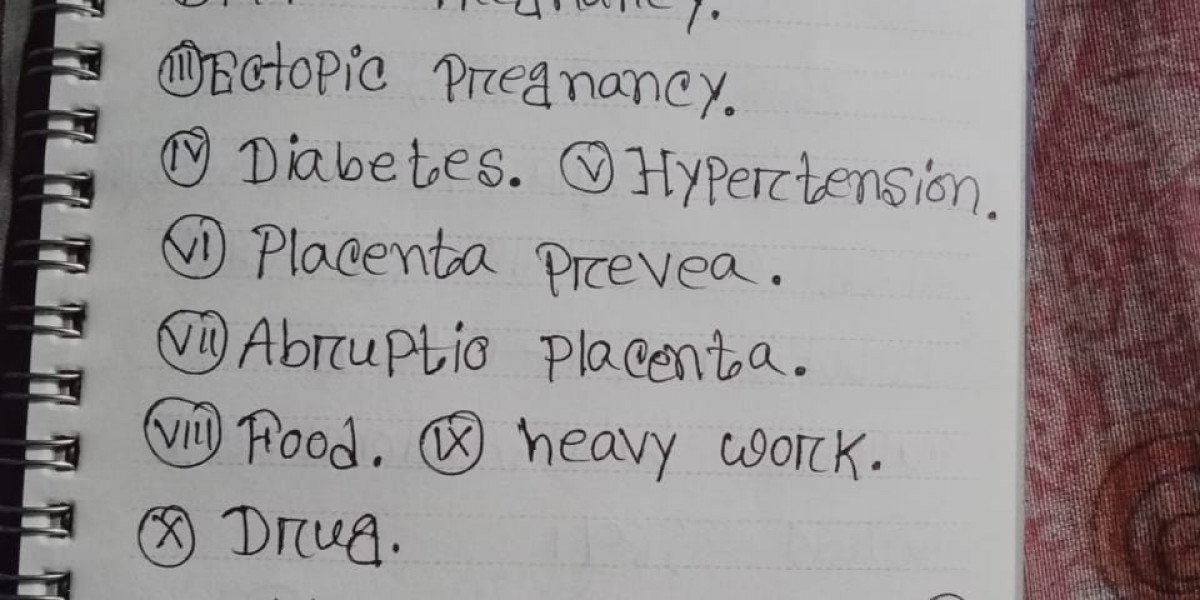 Pregnancy.
(iii) Ectopic Pregnancy.
(iv) Diabetes. (v) Hypertension.
(vi) Placenta Prevea.
(vii) Abruptio Placenta.
(viii) Food. (ix) heavy work.
(x) Drug.